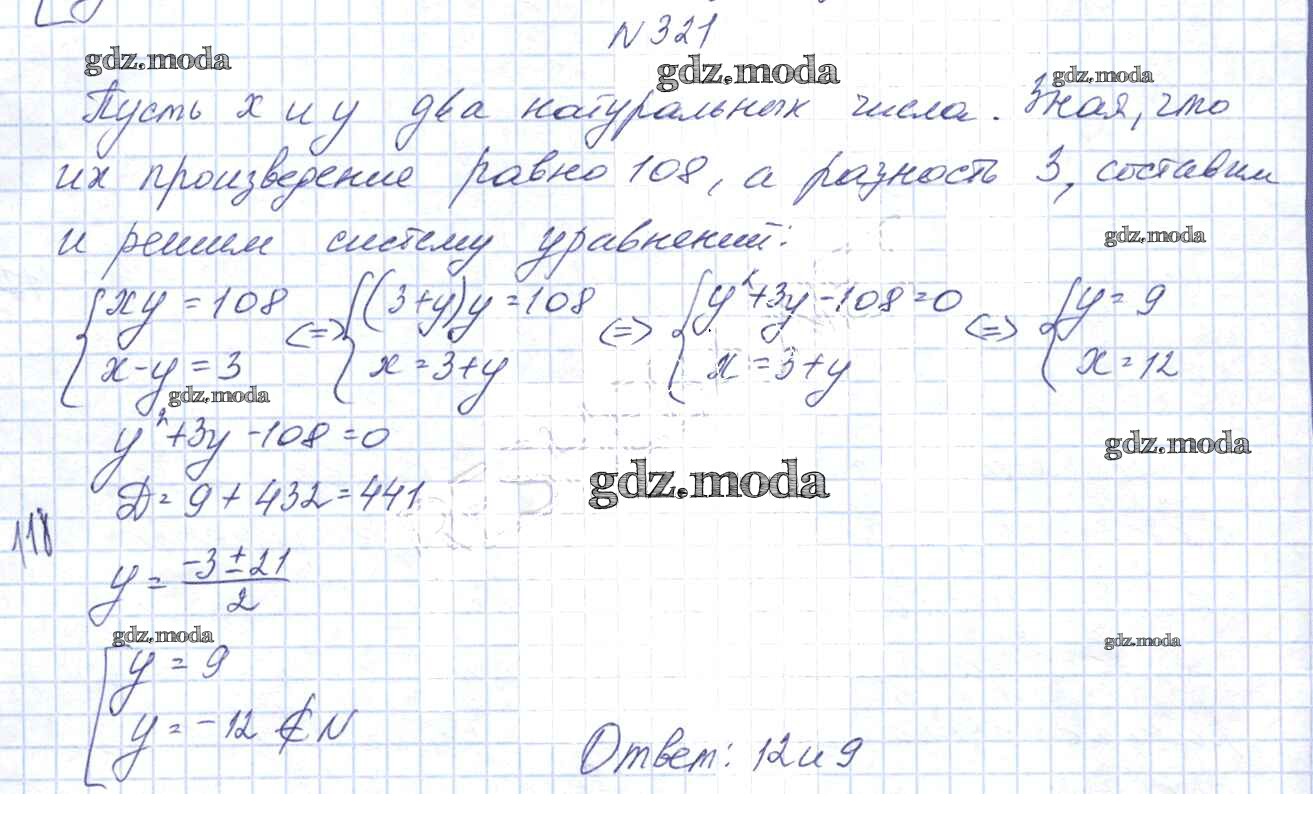 N 321
gdz.moda
gdz.moda
gdz.moda
Пусть x и y два натуральных числа. Зная, что
их произведение равно 108, а разность 3, составим
и решим систему уравнений:
gdz.moda
{xy = 108 <=> {(3+y)y = 108 <=> {y²+3y-108=0 <=> {y = 9
x-y = 3 x = 3+y x = 3+y x = 12
gdz.moda
y²+3y-108=0
gdz.moda
gdz.moda
D = 9 + 432 = 441
118
y = (-3 ± 21)/2
gdz.moda
gdz.moda
[y = 9
y = -12 ∉ N
Ответ: 12 и 9